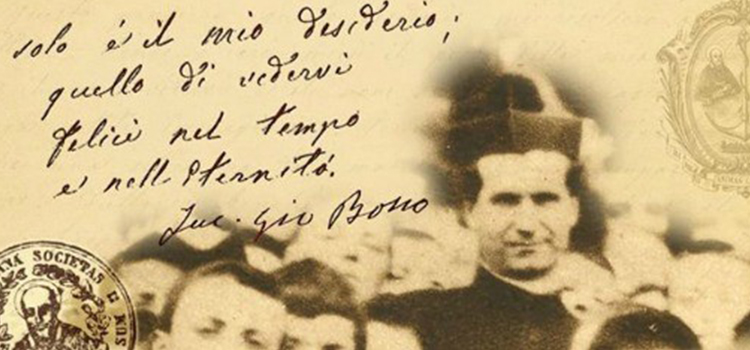 solo è il mio desiderio;
quello di vedervi
felici nel tempo
e nell'eternità.
Sac. Gio Bosco
SOCIETAS